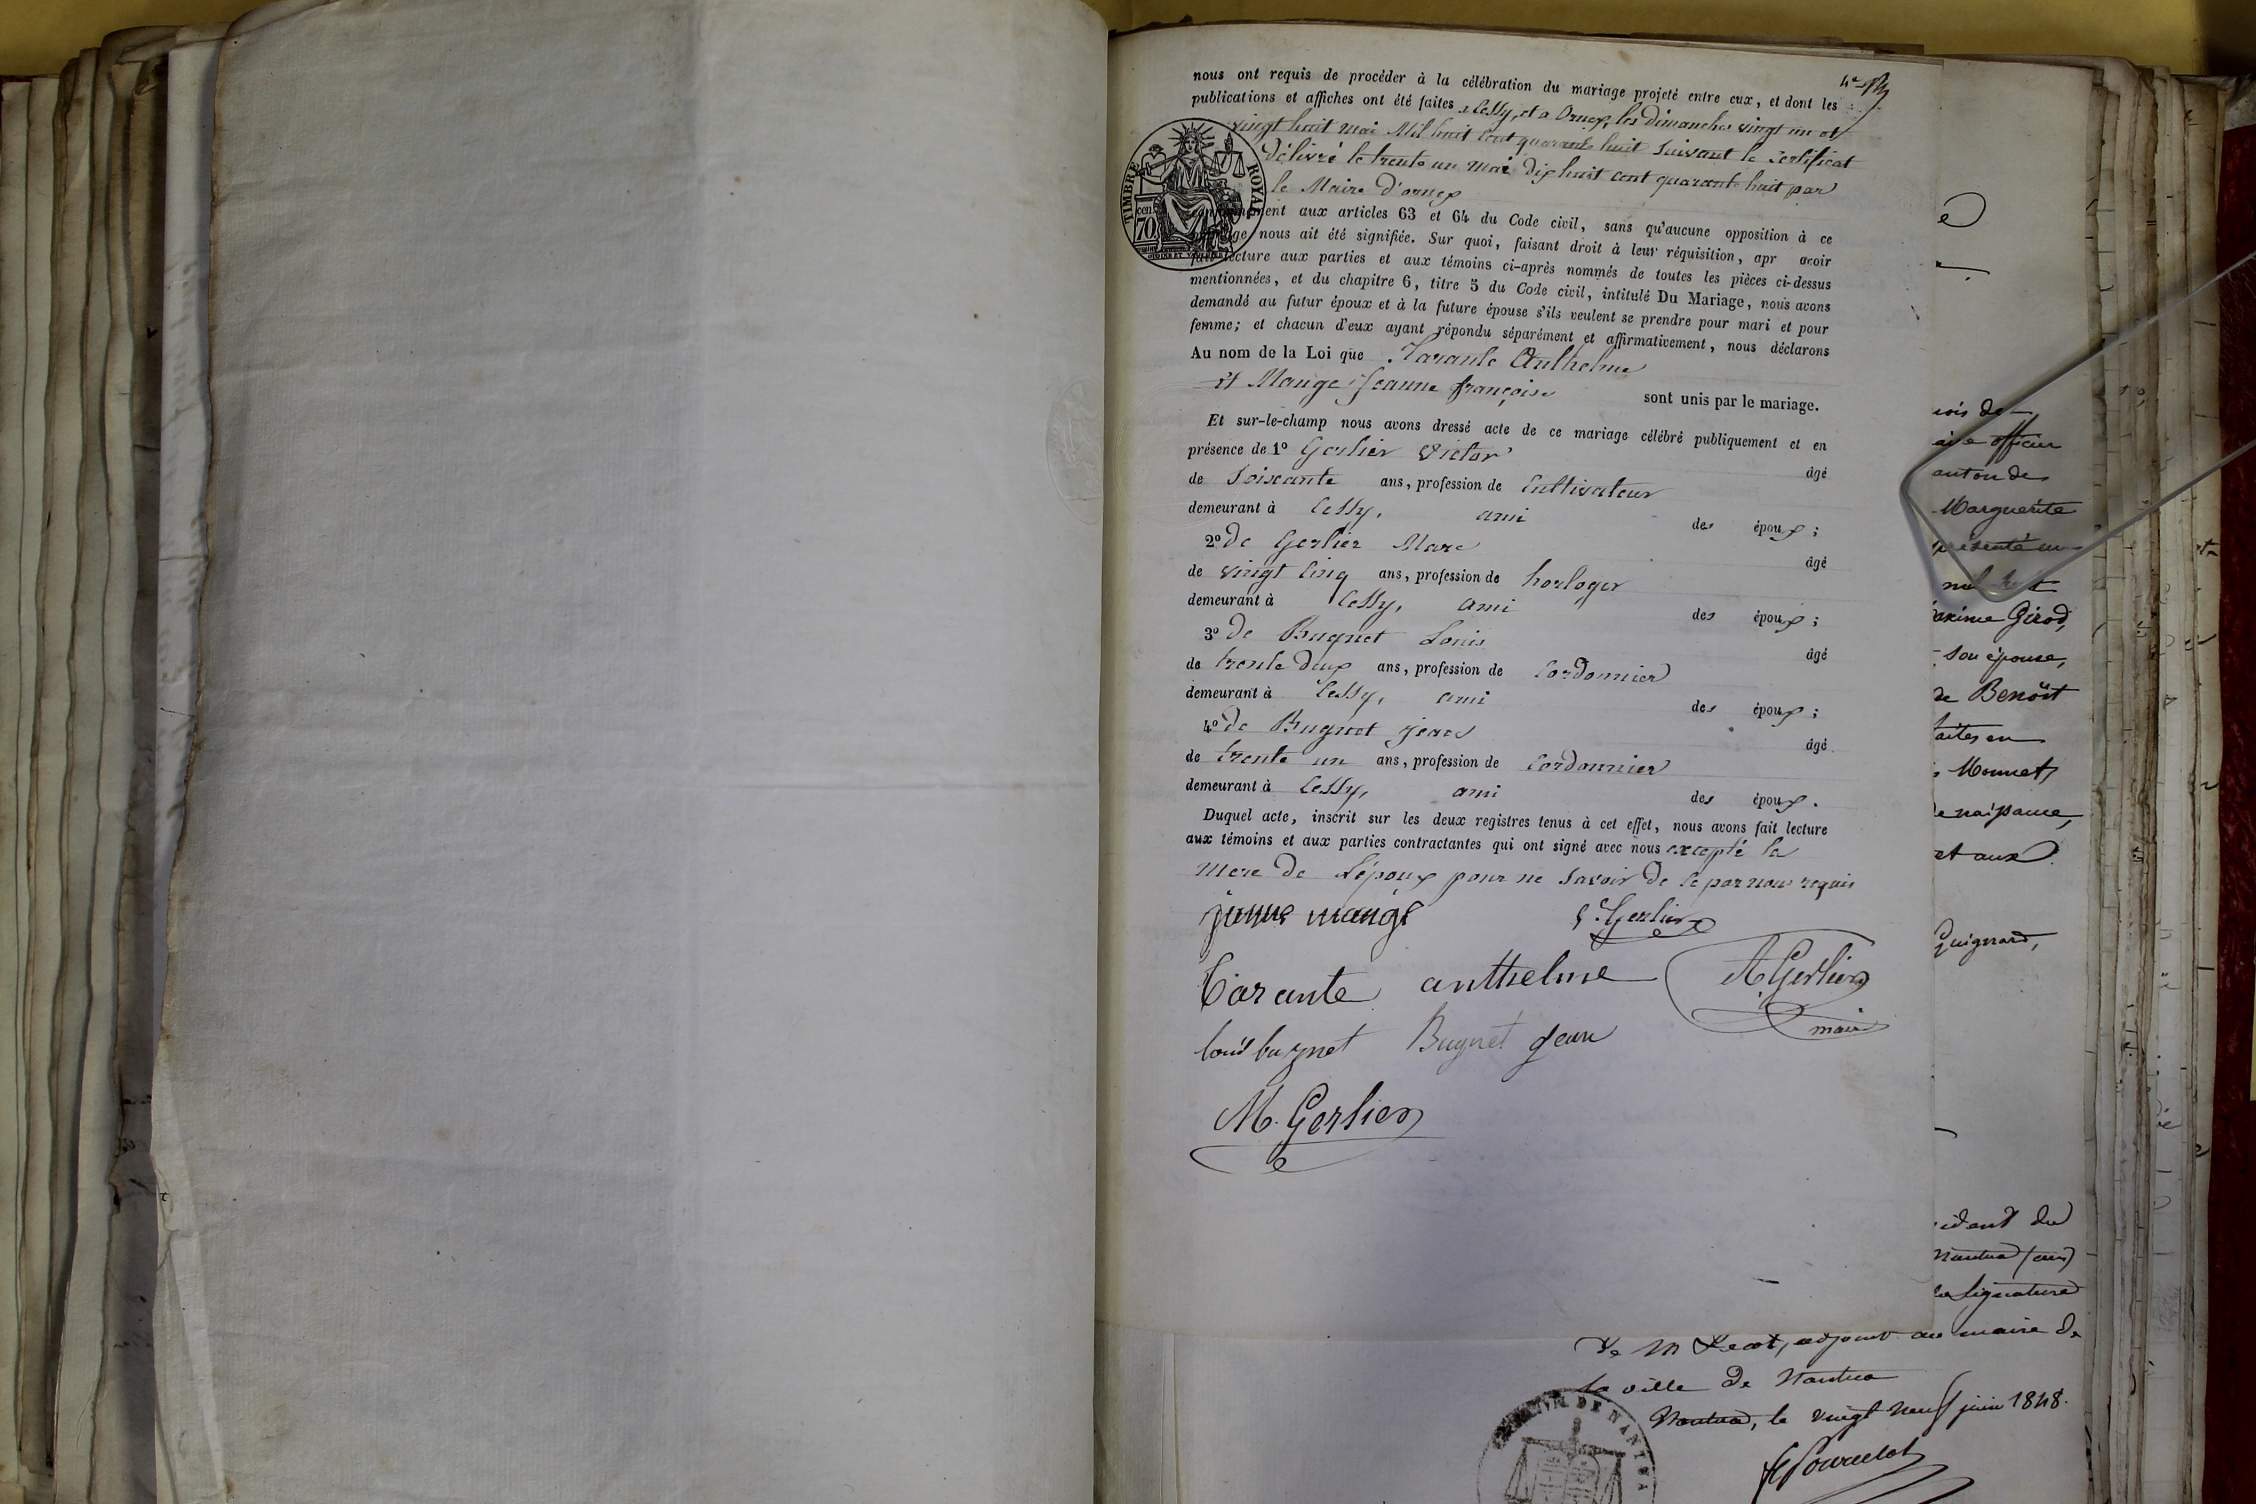 4e
nous ont requis de procéder à la célébration du mariage projeté entre eux, et dont les
publications et affiches ont été faites à Cessy, et a Ornex, les dimanches vingt un et
vingt huit mai Mil huit cent quarante huit suivant le certificat
Délivré le trente un mai dix huit cent quarante huit par
le Maire d'ornex
TIMBRE ROYAL
cen.
70
conformément aux articles 63 et 64 du Code civil, sans qu'aucune opposition à ce
mariage nous ait été signifiée. Sur quoi, faisant droit à leur réquisition, apr avoir
fait lecture aux parties et aux témoins ci-après nommés de toutes les pièces ci-dessus
mentionnées, et du chapitre 6, titre 5 du Code civil, intitulé Du Mariage, nous avons
demandé au futur époux et à la future épouse s'ils veulent se prendre pour mari et pour
femme; et chacun d'eux ayant répondu séparément et affirmativement, nous déclarons
Au nom de la Loi que Tarante Anthelme
et Mange Jeanne françoise sont unis par le mariage.
Et sur-le-champ nous avons dressé acte de ce mariage célébré publiquement et en
présence de 1º Gerlier Victor âgé
de Soixante ans, profession de Cultivateur
demeurant à Cessy, ami des époux;
2º de Gerlier Marc âgé
de vingt cinq ans, profession de horloger
demeurant à Cessy, ami des époux;
3º de Bugnet Louis âgé
de trente deux ans, profession de Cordonnier
demeurant à Cessy, ami des époux;
4º de Bugnet jean âgé
de trente un ans, profession de Cordonnier
demeurant à Cessy, ami des époux.
Duquel acte, inscrit sur les deux registres tenus à cet effet, nous avons fait lecture
aux témoins et aux parties contractantes qui ont signé avec nous excepté la
mere de l'époux pour ne savoir de ce par nous requis
jeanne mange Gerlier
Tarante anthelme A Gerlier
maire
louis bugnet Bugnet Jean
M. Gerlier
officier
canton de
Marguerite
présenté
Girod,
son épouse,
de Benoît
faites en
Monnet,
de naissance,
et aux
Guignard,
du
Nantua (ain)
la signature
De M adjoint au maire de
la ville de Nantua
Nantua, le vingt neuf juin 1848.
DE NANTUA